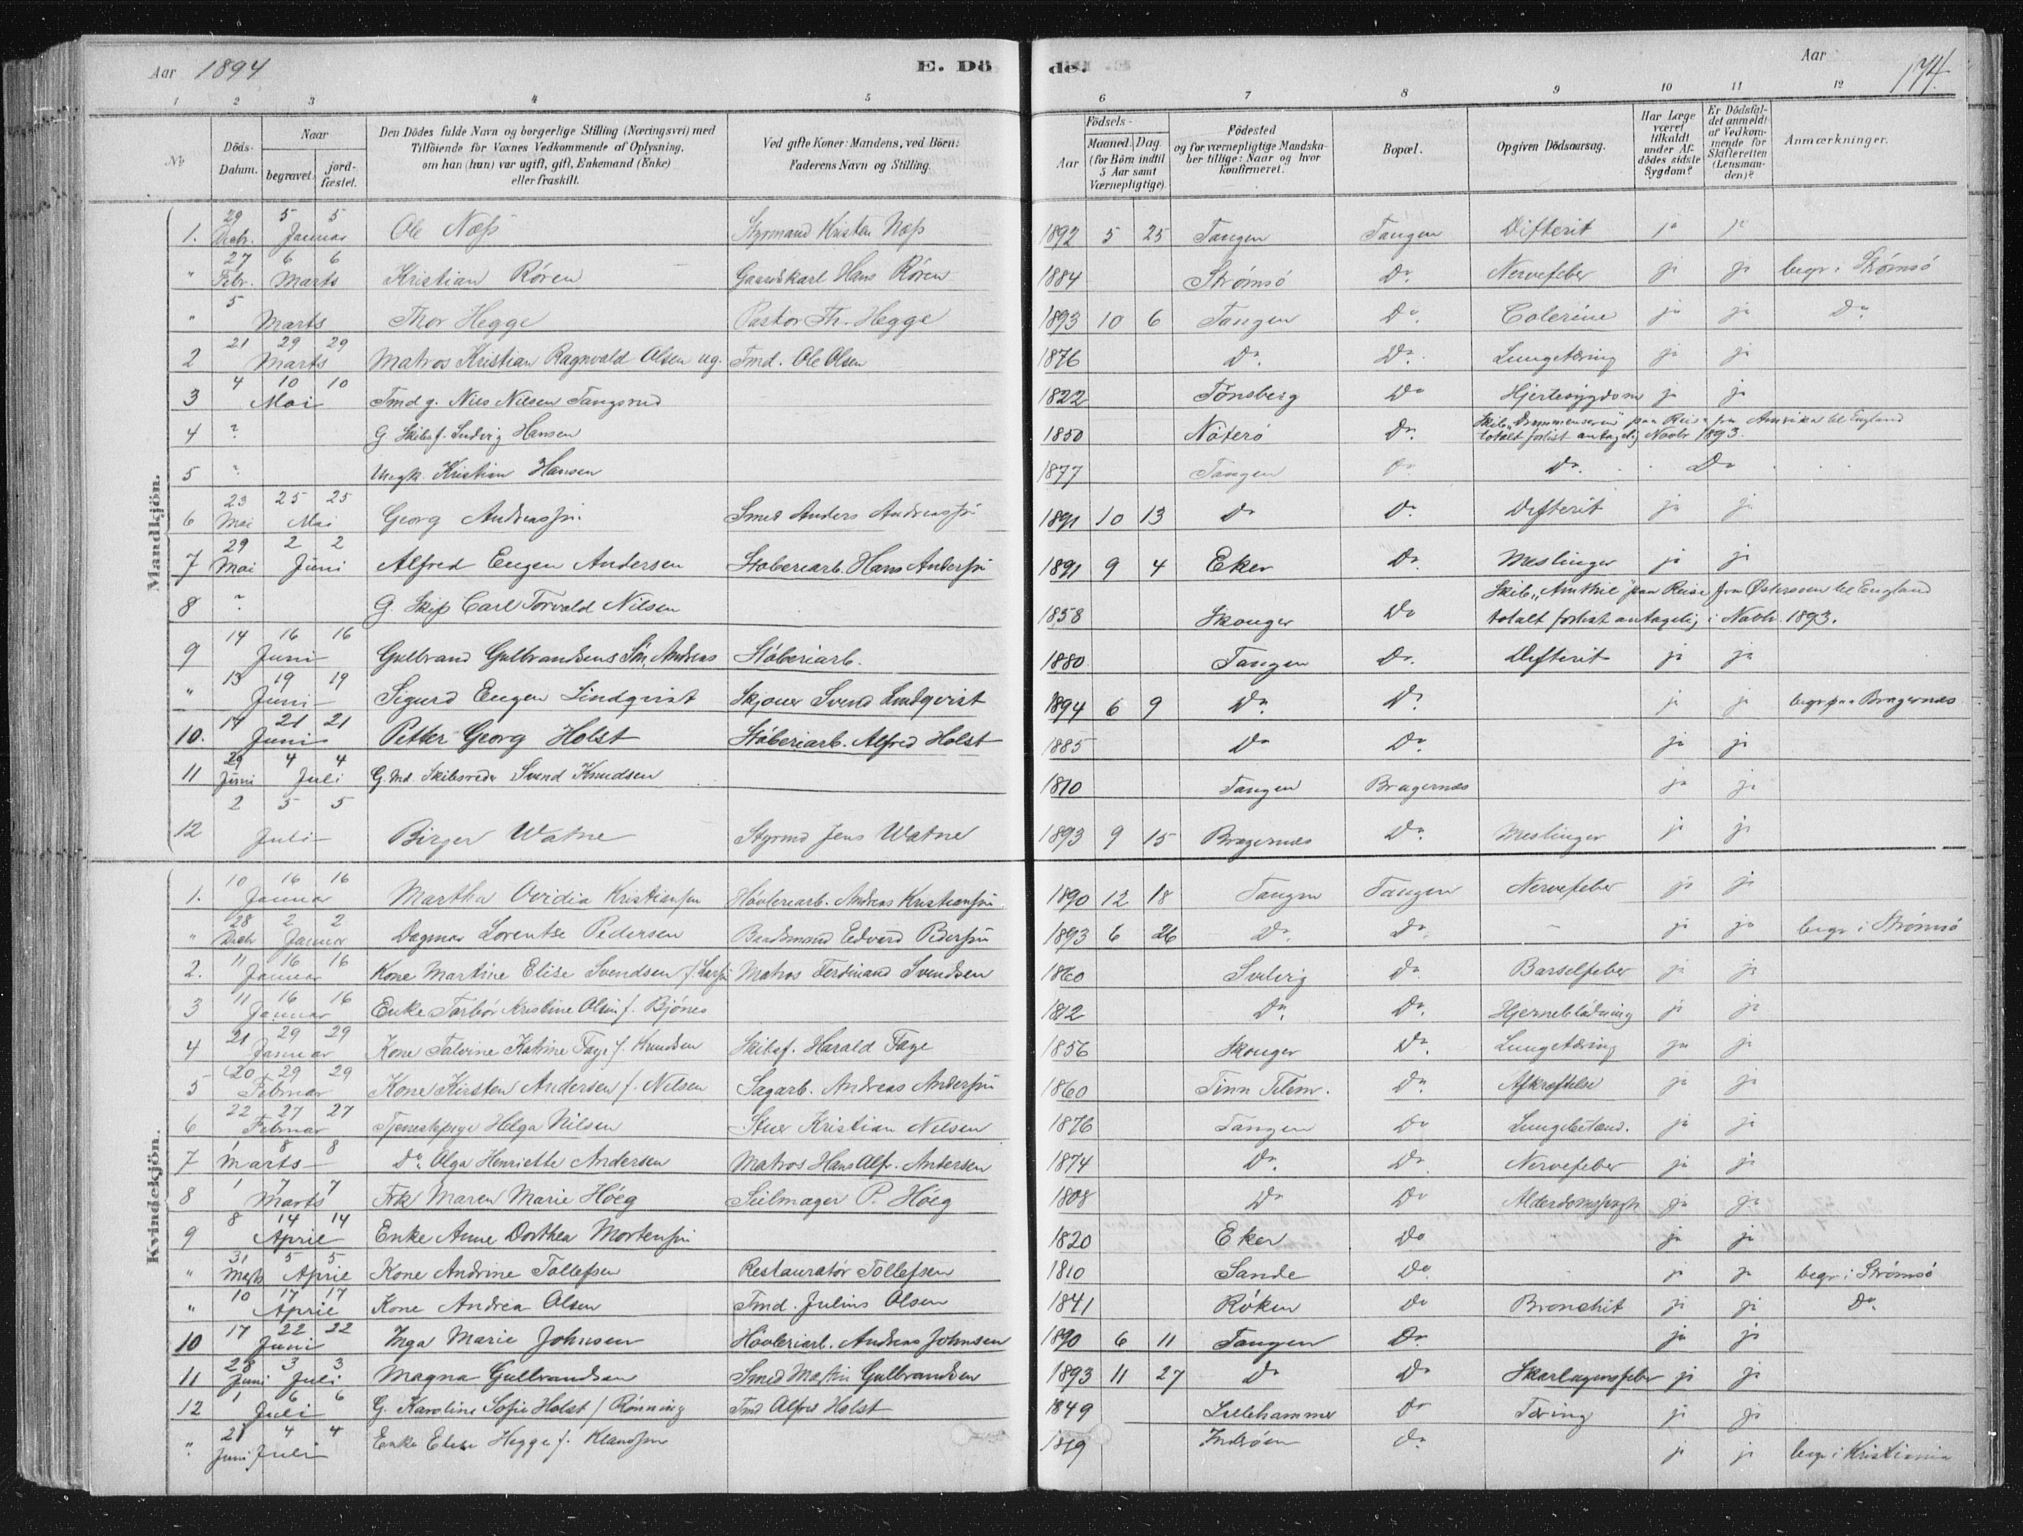 Aar 1894 E. Dö de. Aar 174.
1 2 3 4 5 6 7 8 9 10 11 12
No Döds-Datum. Naar begravet. jordfæstet. Den Dödes fulde Navn og borgerlige Stilling (Næringsvei) med Tilföiende for Voxnes Vedkommende af Oplysning, om han (hun) var ugift, gift, Enkemand (Enke) eller fraskilt. Ved gifte Koner: Mandens, ved Börn: Faderens Navn og Stilling. Födsels- Aar Maaned. Dag. (for Börn indtil 5 Aar samt Værnepligtige). Födested og for værnepligtige Mandskaber tillige: Naar og hvor konfirmeret. Bopæl. Opgiven Dödsaarsag. Har Læge været tilkaldt under Afdödes sidste Sygdom? Er Dödsfaldet anmeldt af Vedkommende for Skifteretten (Lensmanden)? Anmærkninger.
Mandkjön.
1. 29 Decbr. 5 5 Januar Ole Næss Styrmand Kristen Næss 1892 5 25 Tangen Tangen Difterit ja ja
" 27 Febr. 6 6 Marts Kristian Røren Gaardskarl Hans Røren 1884 Strømsö Do Nervefeber ja ja begr i Strømsö
" 5 Marts Thor Hegge Pastor Th. Hegge 1893 10 6 Tangen Do Colerine ja ja Do
2 21 29 29 Marts Matros Kristian Ragnvald Olsen ug. Tmd. Ole Olsen 1876 Do Do Lungetæring ja ja
3 4 10 10 Mai Tmd g. Nils Nilsen Tangsrud 1822 Tønsberg Do Hjertesygdom ja ja
4 ? G Skibsf. Ludvig Hansen 1850 Nøterö Do Skib „Drammenseren" paa Reise fra Amerika til England totalt forlist antagelig Novbr 1893.
5 ? Ungk. Kristian Hansen 1877 Tangen Do Do Do
6 23 25 25 Mai Mai Georg Andreassn. Smed Anders Andreassn 1891 10 13 Do Do Difterit ja ja
7 29 2 2 Mai Juni Alfred Eugen Andersen Støberiarb. Hans Anderssn 1891 9 4 Eker Do Meslinger ja ja
8 ? G. Skipf Carl Torvald Nilsen 1858 Skouger Do Skib „ paa Reise fra Østersøen til England totalt forlist antagelig i Novbr. 1893.
9 14 16 16 Juni Gulbrand Gulbrandsens Søn Andreas Støberiarb. 1880 Tangen Do Difterit ja ja
" 13 19 19 Juni Sigurd Eugen Lindqvist Skjouer Svend Lindqvist 1894 6 9 Do Do ja ja begr paa Bragernæs
10. 17 21 21 Juni Petter Georg Holst Støberiarb. Alfred Holst 1885 Do Do ja ja
11 29 4 4 Juni Juli G. Md. Skibsreder Svend Knudsen 1810 Tangen Bragernæs ja ja
12 2 5 5 Juli Birger Watne Styrmd Jens Watne 1893 9 15 Bragernæs Do Meslinger ja ja
Kvindekjön.
1. 10 16 16 Januar Martha Ovidia Kristianssen Høvleriarb. Andreas Kristianssn. 1890 12 18 Tangen Tangen Nervefeber ja ja
" 28 2 2 Decbr Januar Dagmar Lorentse Pedersen Baadsmand Edvard Pederssn 1893 6 26 Do Do " ja ja begr i Strømsö
2. 11 16 16 Januar Kone Martine Elise Svendsen f Larssn Matros Ferdinand Svendsen 1860 Svelvig Do Barselfeber ja ja
3 11 16 16 Januar Enke Torbør Kristine Olsen f. Bjønes 1812 Do Do Hjerneblødning ja ja
4 21 29 29 Januar Kone Talvine Katrine Faye f. Knudsen Skibsf. Harald Faye 1856 Skouger Do Lungetæring ja ja
5 20 29 29 Februar Kone Kirsten Andersen f. Nilsen Sagarb. Andreas Anderssn 1860 Tinn Telem. Do Afkræftelse ja ja
6 22 27 27 Februar Tjenestepige Helga Nilsen Stuer Kristian Nilsen 1876 Tangen Do Lungebetænd. ja ja
7 1 8 8 Marts Do. Olga Henriette Andersen Matros Hans Alfr. Andersen 1874 Do Do Nervefeber ja ja
8 1 7 7 Marts Frk Maren Marie Høeg Seilmager P. Høeg 1808 Do Do Alderdomssvagh ja ja
9 8 14 14 April Enke Anne Dorthea Mortenssn 1820 Eker Do " ja ja
" 31 5 5 Marts April Kone Andrine Tollefsen Restauratør Tollefsen 1810 Sande Do ja ja begr i Strømsö
" 10 17 17 April Kone Andrea Olsen Tmd. Julius Olsen 1841 Røken Do Bronchit ja ja Do
10 17 22 22 Juni Inga Marie Johnsen Høvleriarb. Andreas Johnsen 1890 6 11 Tangen Do ja ja
11 28 3 3 Juni Juli Magna Gulbrandsen Smed Martin Gulbrandsen 1893 11 27 Do Do Skarlagensfeber ja ja
12 1 6 6 Juli G. Karoline Sofie Holst f Rønning Tmd Alfred Holst 1849 Lillehammer Do Tæring ja ja
" 28 4 4 Juni Juli Enke Elise Hegge f. Klaussen 1819 Inderøen Do ja ja begr i Kristiania